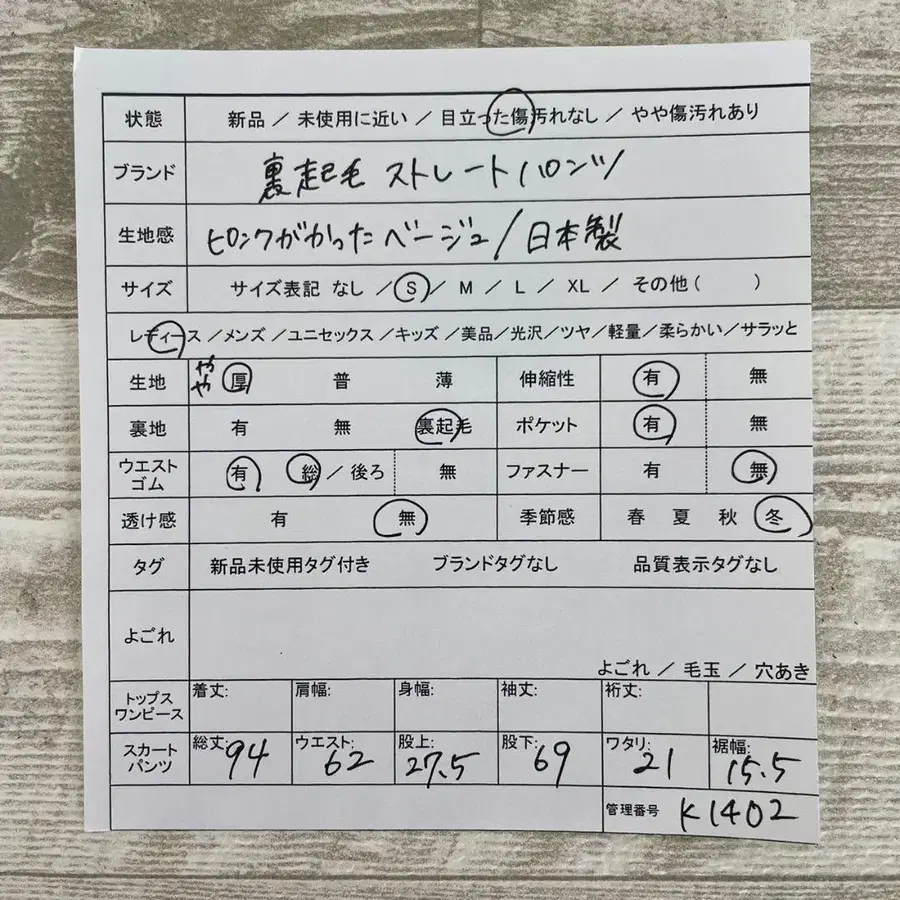 状態 新品 / 未使用に近い / 目立った傷汚れなし / やや傷汚れあり
ブランド 裏起毛 ストレートパンツ
生地感 ピンクがかったベージュ/日本製
サイズ サイズ表記 なし / S / M / L / XL / その他( )
レディース /メンズ /ユニセックス /キッズ /美品/光沢/ツヤ/軽量/柔らかい/サラッと
生地 やや 厚 普 薄 伸縮性 有 無
裏地 有 無 裏起毛 ポケット 有 無
ウエストゴム 有 総 / 後ろ 無 ファスナー 有 無
透け感 有 無 季節感 春 夏 秋 冬
タグ 新品未使用タグ付き ブランドタグなし 品質表示タグなし
よごれ
よごれ / 毛玉 / 穴あき
トップス ワンピース 着丈: 肩幅: 身幅: 袖丈: 裄丈:
スカート パンツ 総丈: 94 ウエスト: 62 股上: 27.5 股下: 69 ワタリ: 21 裾幅: 15.5
管理番号 K1402